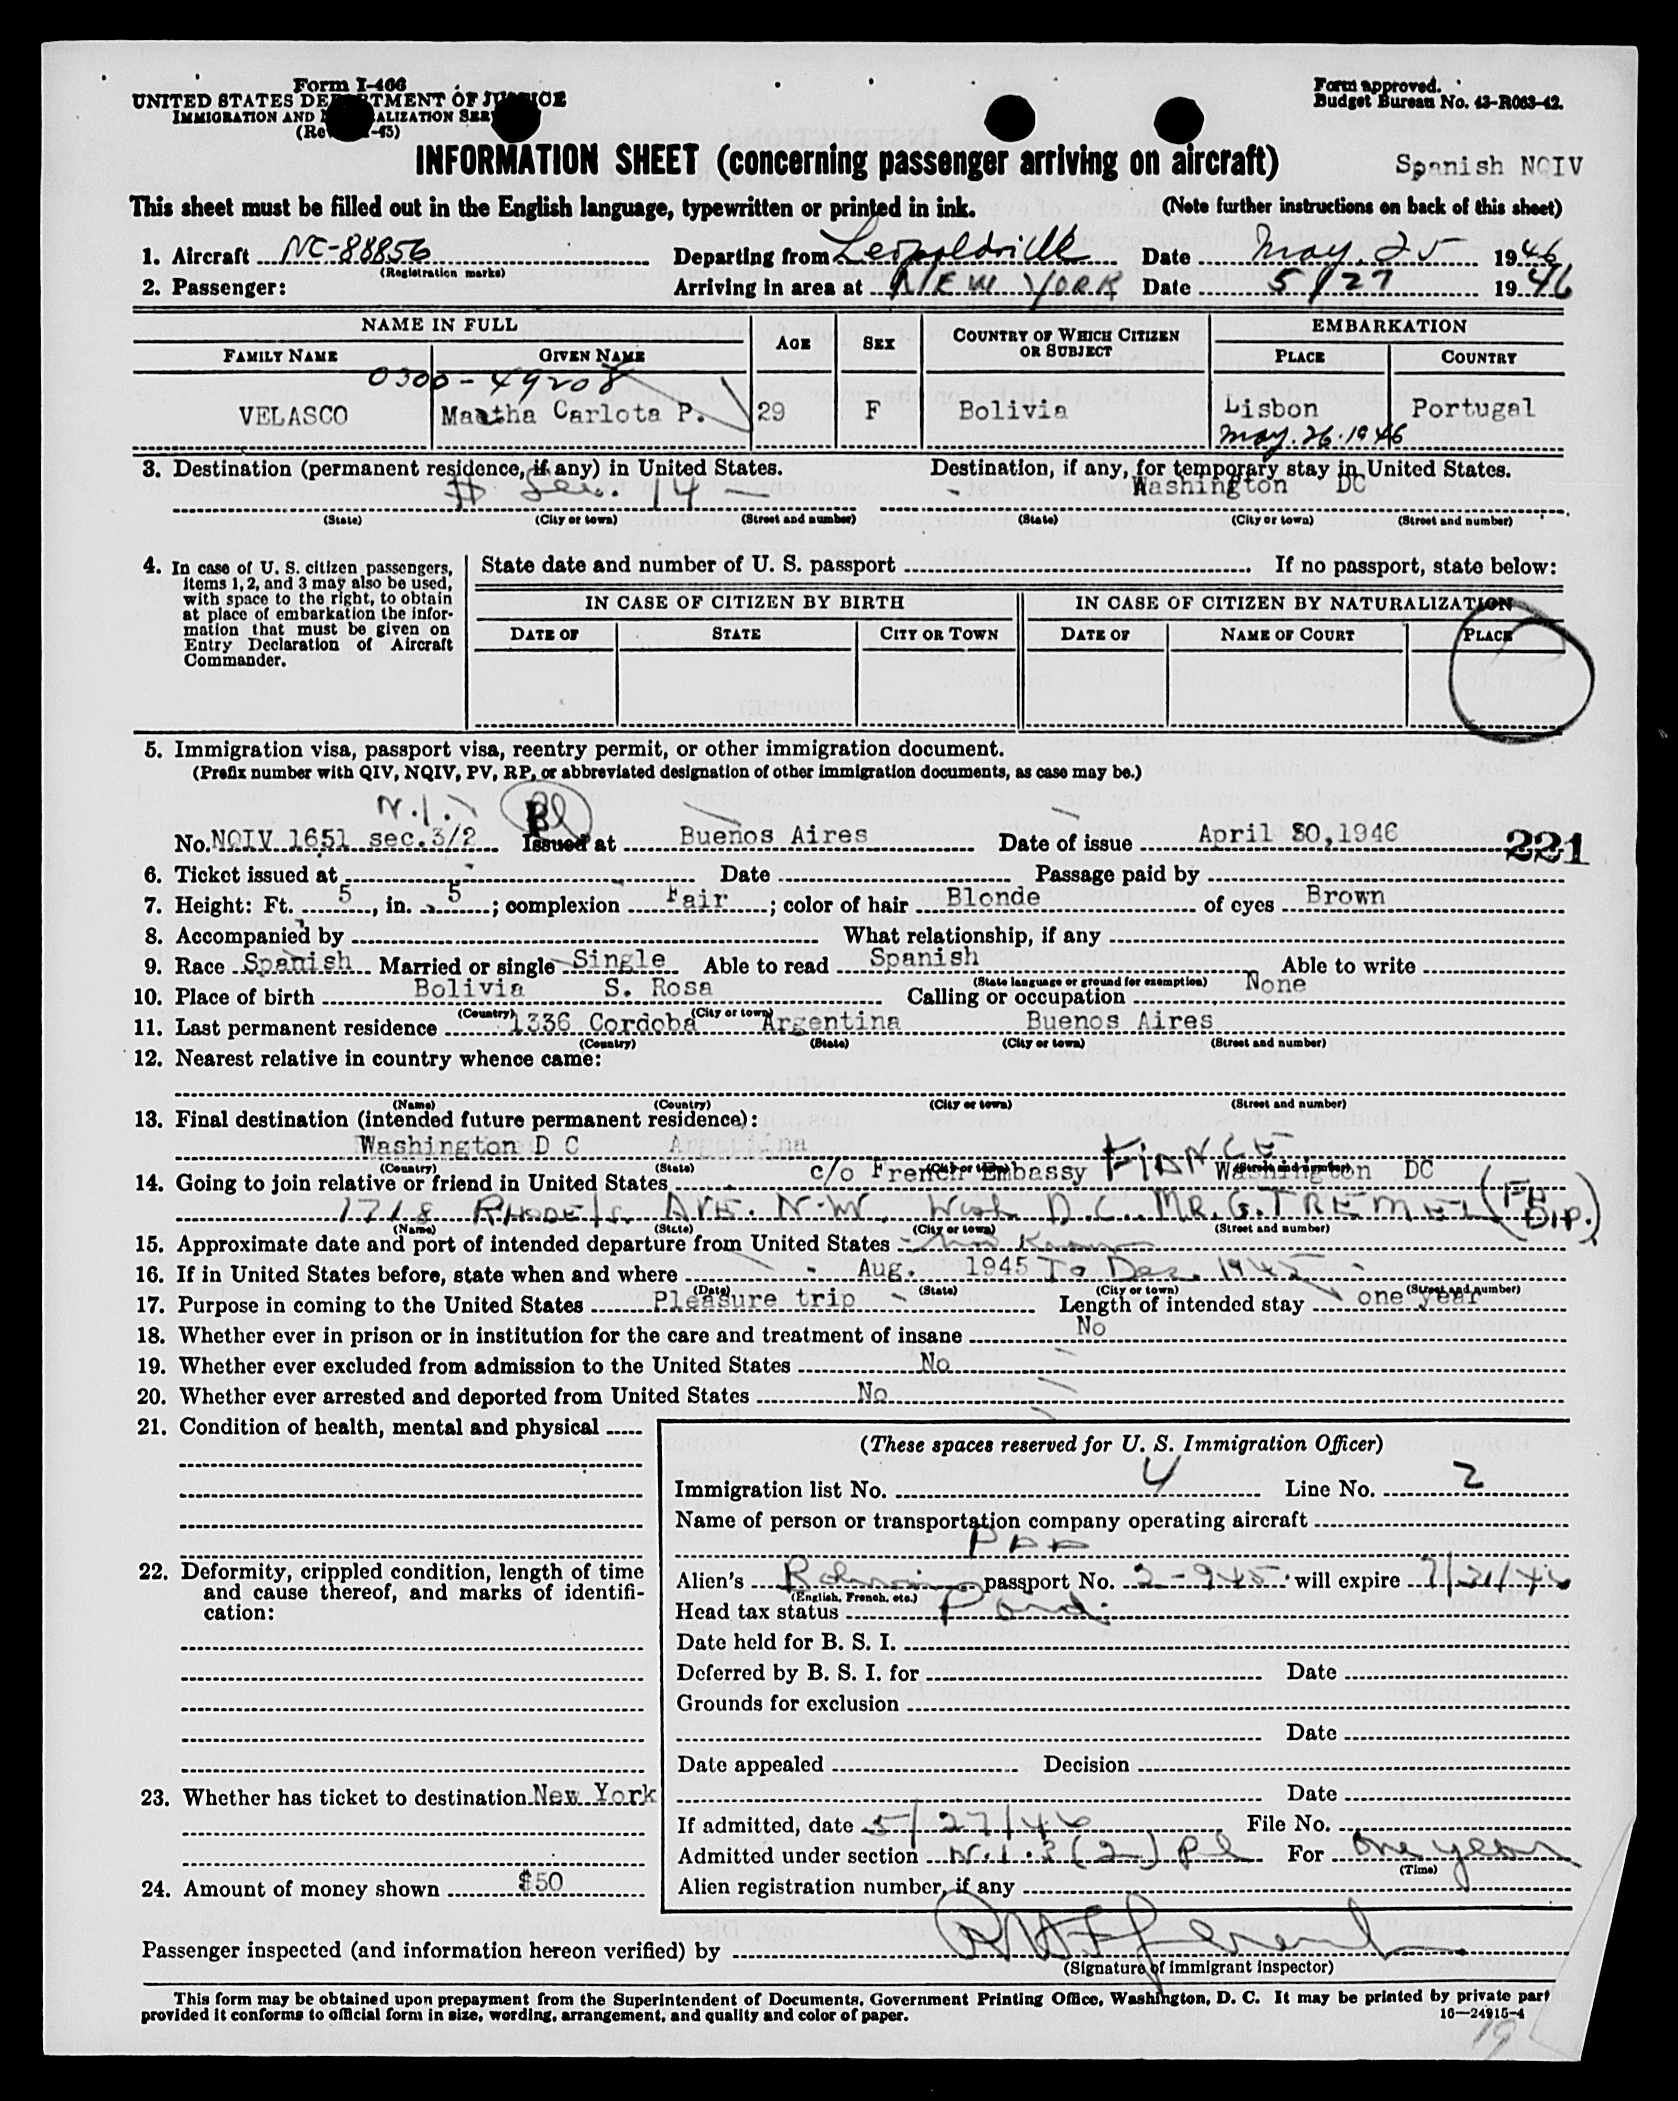 Form I-466
UNITED STATES DEPARTMENT OF JUSTICE
IMMIGRATION AND NATURALIZATION SER
(Re -45)
Form approved.
Budget Bureau No. 43-R063-42.
INFORMATION SHEET (concerning passenger arriving on aircraft)
Spanish NQIV
This sheet must be filled out in the English language, typewritten or printed in ink. (Note further instructions on back of this sheet)
1. Aircraft NC-88856 Departing from Leopoldville Date May 25 1946
(Registration marks)
2. Passenger: Arriving in area at NEW YORK Date 5/27 1946
NAME IN FULL AGE SEX COUNTRY OF WHICH CITIZEN OR SUBJECT EMBARKATION
FAMILY NAME GIVEN NAME PLACE COUNTRY
0300-49208
VELASCO Martha Carlota P. 29 F Bolivia Lisbon Portugal
May. 26. 1946
3. Destination (permanent residence, if any) in United States. Destination, if any, for temporary stay in United States.
14 - Washington DC
(State) (City or town) (Street and number) (State) (City or town) (Street and number)
4. In case of U. S. citizen passengers, items 1, 2, and 3 may also be used, with space to the right, to obtain at place of embarkation the information that must be given on Entry Declaration of Aircraft Commander.
State date and number of U. S. passport If no passport, state below:
IN CASE OF CITIZEN BY BIRTH IN CASE OF CITIZEN BY NATURALIZATION
DATE OF STATE CITY OR TOWN DATE OF NAME OF COURT PLACE
5. Immigration visa, passport visa, reentry permit, or other immigration document.
(Prefix number with QIV, NQIV, PV, RP, or abbreviated designation of other immigration documents, as case may be.)
No. NQIV 1651 sec.3/2 Issued at Buenos Aires Date of issue April 30,1946 221
6. Ticket issued at Date Passage paid by
7. Height: Ft. 5, in. 5; complexion Fair; color of hair Blonde of eyes Brown
8. Accompanied by What relationship, if any
9. Race Spanish Married or single Single Able to read Spanish Able to write
(State language or ground for exemption)
10. Place of birth Bolivia S. Rosa Calling or occupation None
(Country) (City or town)
11. Last permanent residence 1336 Cordoba Argentina Buenos Aires
(Country) (State) (City or town) (Street and number)
12. Nearest relative in country whence came:
(Name) (Country) (City or town) (Street and number)
13. Final destination (intended future permanent residence):
Washington D C Argentina
(Country) (State) (City or town) (Street and number)
14. Going to join relative or friend in United States c/o French Embassy FIANCE Washington DC
1718 RHODE Is. AVE. N.W. Wash D.C. MR. G. TREMEL (FR DIP.)
(Name) (State) (City or town) (Street and number)
15. Approximate date and port of intended departure from United States
16. If in United States before, state when and where Aug. 1945 To Dec. 1945
(Date) (State) (City or town) (Street and number)
17. Purpose in coming to the United States Pleasure trip Length of intended stay one year
18. Whether ever in prison or in institution for the care and treatment of insane No
19. Whether ever excluded from admission to the United States No
20. Whether ever arrested and deported from United States No
21. Condition of health, mental and physical
(These spaces reserved for U. S. Immigration Officer)
Immigration list No. 4 Line No. 2
Name of person or transportation company operating aircraft
PAA
22. Deformity, crippled condition, length of time and cause thereof, and marks of identification:
Alien's passport No. 2-945 will expire 7/31/46
(English, French, etc.)
Head tax status Paid.
Date held for B. S. I.
Deferred by B. S. I. for Date
Grounds for exclusion
Date
Date appealed Decision
23. Whether has ticket to destination New York
Date
If admitted, date 5/27/46 File No.
Admitted under section N.I.3(2) Pl For One year
(Time)
24. Amount of money shown $50
Alien registration number, if any
Passenger inspected (and information hereon verified) by
(Signature of immigrant inspector)
This form may be obtained upon prepayment from the Superintendent of Documents, Government Printing Office, Washington, D. C. It may be printed by private part
provided it conforms to official form in size, wording, arrangement, and quality and color of paper.
16—24915-4
19